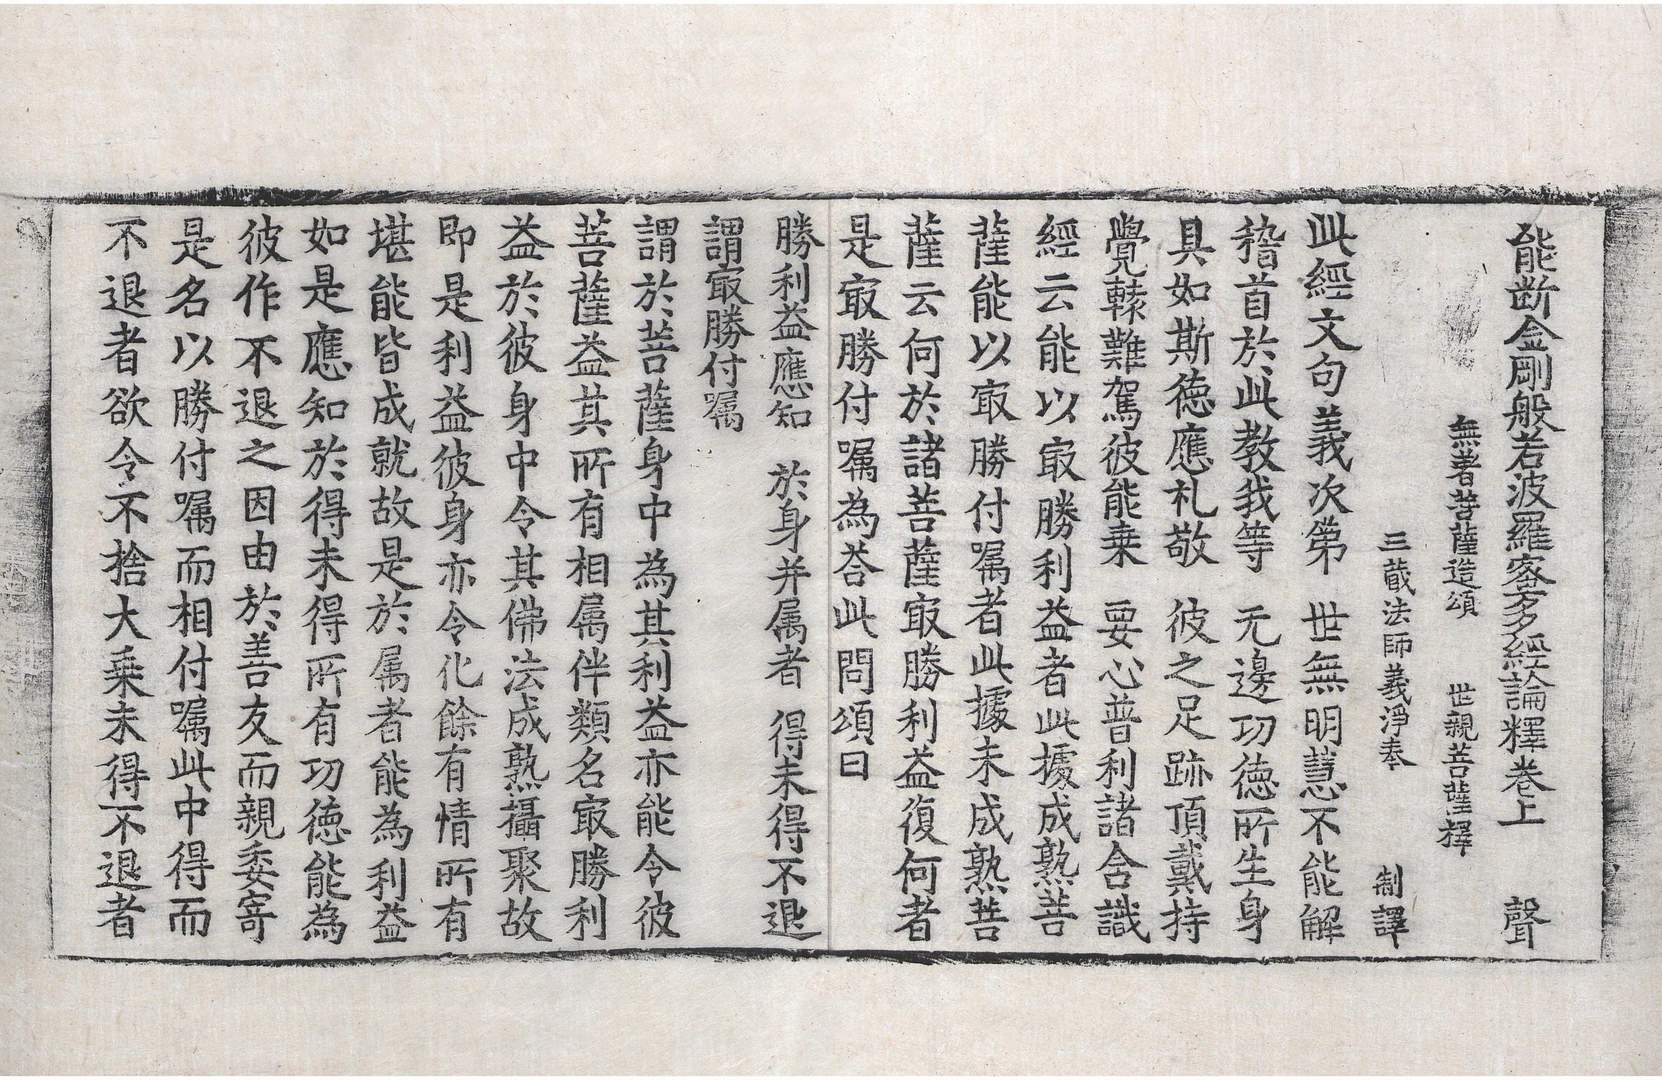 能断金剛般若波羅蜜多經論釋卷上 聲
無著菩薩造頌 世親菩薩釋
三蔵法師義淨奉 制譯
此經文句義次第 世無明慧不能解
稽首於此教我等 无邊功德所生身
具如斯德應礼敬 彼之足跡頂戴持
覺轅難駕彼能乗 要心普利諸含識
經云能以㝡勝利益者此據成熟菩
薩能以㝡勝付嘱者此據未成熟菩
薩云何於諸菩薩㝡勝利益復何者
是㝡勝付嘱為荅此問頌曰
勝利益應知 於身并属者 得未得不退
謂㝡勝付嘱
謂於菩薩身中為其利益亦能令彼
菩薩益其所有相属伴類名㝡勝利
益於彼身中令其佛法成熟攝聚故
即是利益彼身亦令化餘有情所有
堪能皆成就故是於属者能為利益
如是應知於得未得所有功德能為
彼作不退之因由於善友而親委寄
是名以勝付嘱而相付嘱此中得而
不退者欲令不捨大乗未得不退者